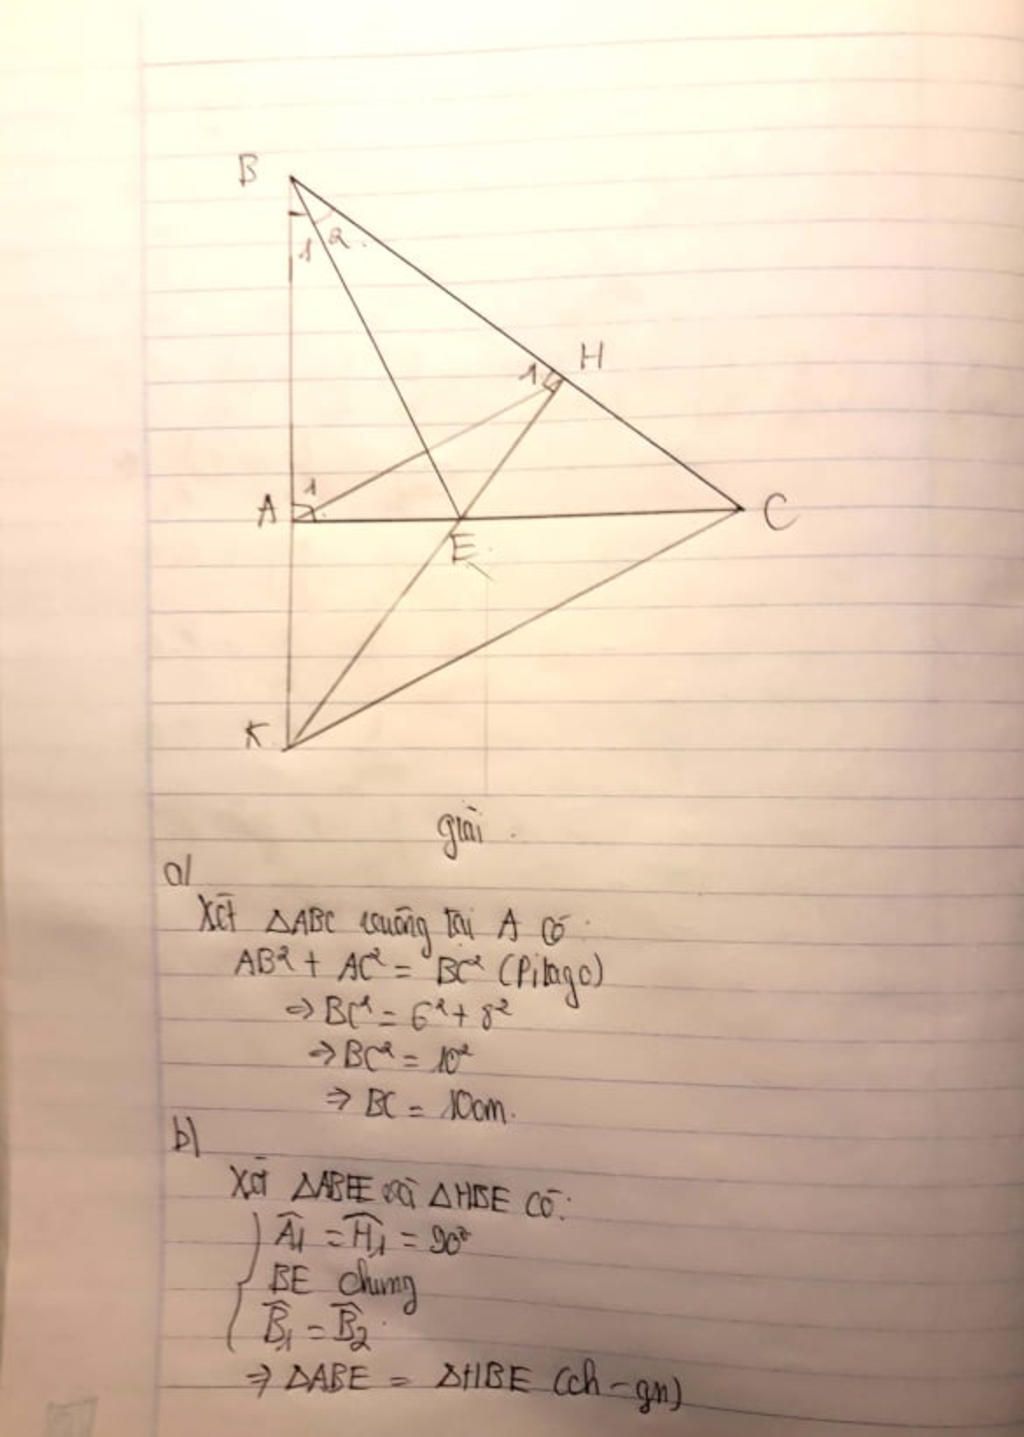 B
1 2
H
1
1
A
C
E
K
giải
a/
Xét ΔABC vuông tại A có:
AB² + AC² = BC² (Pitago)
⇒ BC² = 6² + 8²
⇒ BC² = 10²
⇒ BC = 10cm.
b/
Xét ΔABE và ΔHBE có:
Â₁ = Ĥ₁ = 90°
BE chung
B̂₁ = B̂₂
⇒ ΔABE = ΔHBE (ch - gn)